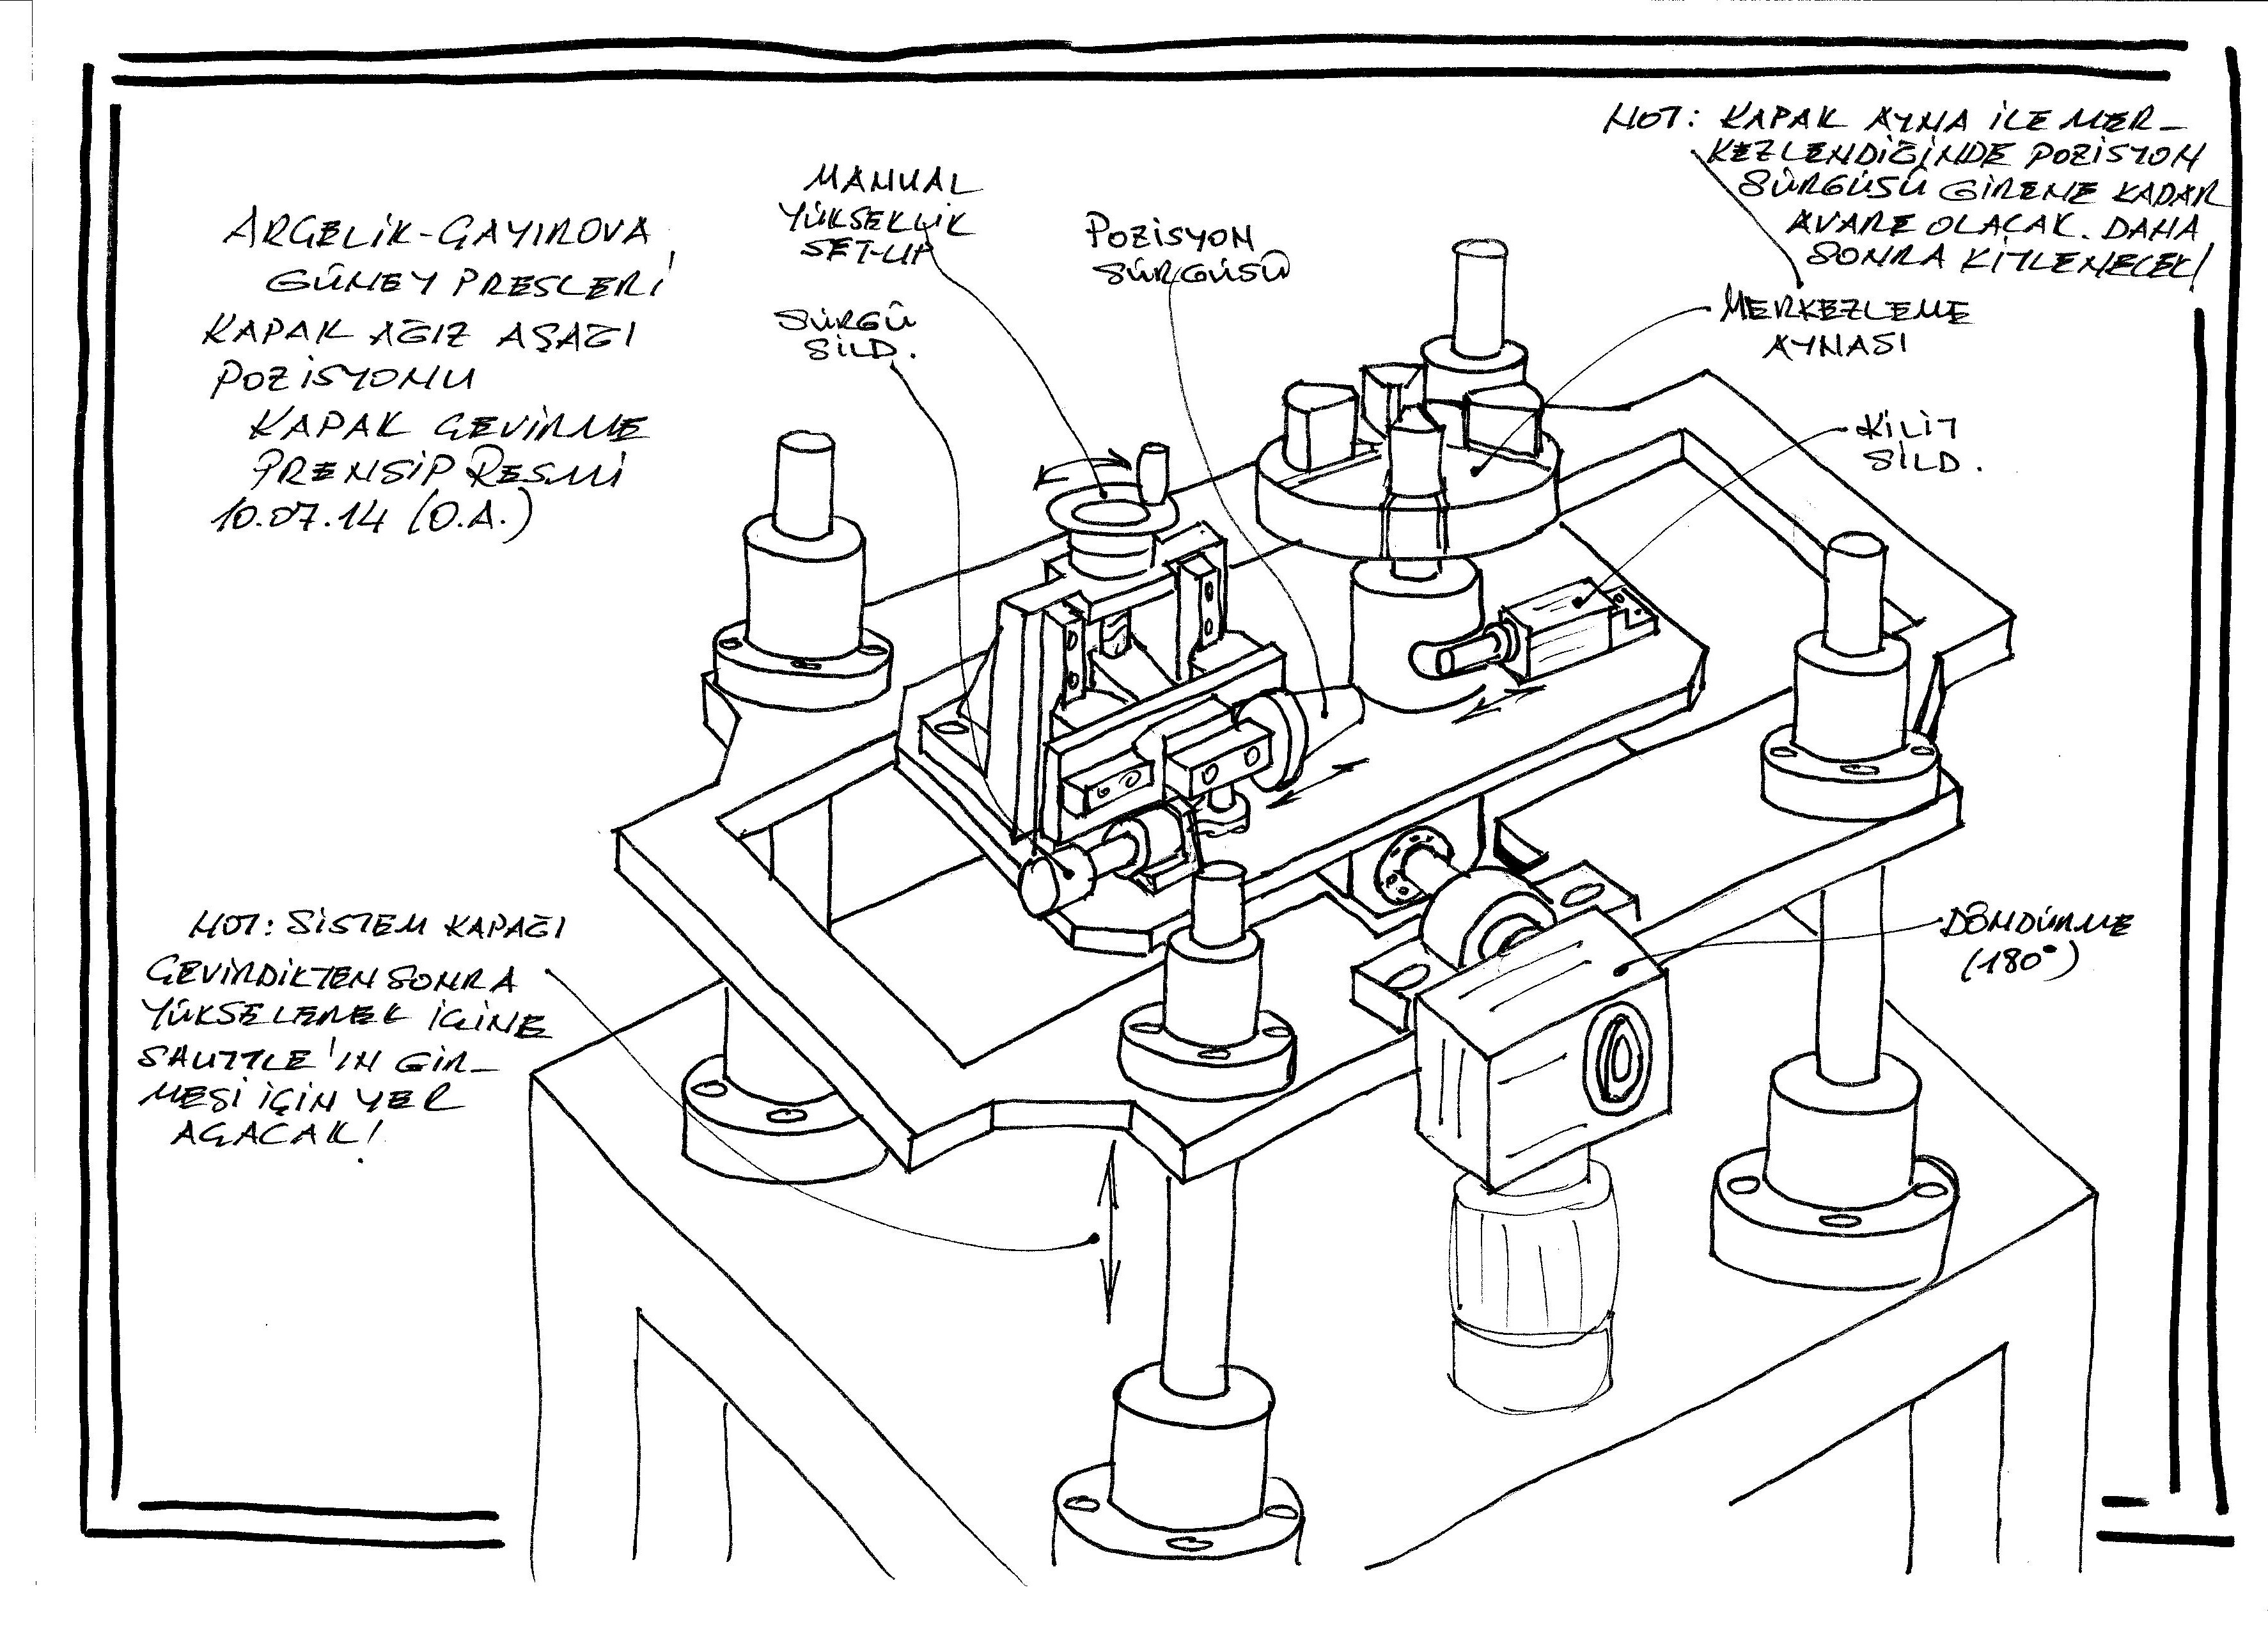 ARÇELİK-ÇAYIROVA
GÜNEY PRESLERİ
KAPAK AĞIZ AŞAĞI
POZİSYONU
KAPAK ÇEVİRME
PRENSİP RESMİ
10.07.14 (O.A.)
MANUAL
YÜKSEKLİK
SET-UP
SÜRGÜ
SİLD.
POZİSYON
SÜRGÜSÜ
NOT: KAPAK AYNA İLE MER-
KEZLENDİĞİNDE POZİSYON
SÜRGÜSÜ GİRENE KADAR
AVARE OLACAK. DAHA
SONRA KİTLENECEK!
MERKEZLEME
AYNASI
KİLİT
SİLD.
NOT: SİSTEM KAPAĞI
ÇEVİRDİKTEN SONRA
YÜKSELEREK İÇİNE
SHUTTLE'IN GİR-
MESİ İÇİN YER
AÇACAK!
DÖNDÜRME
(180°)